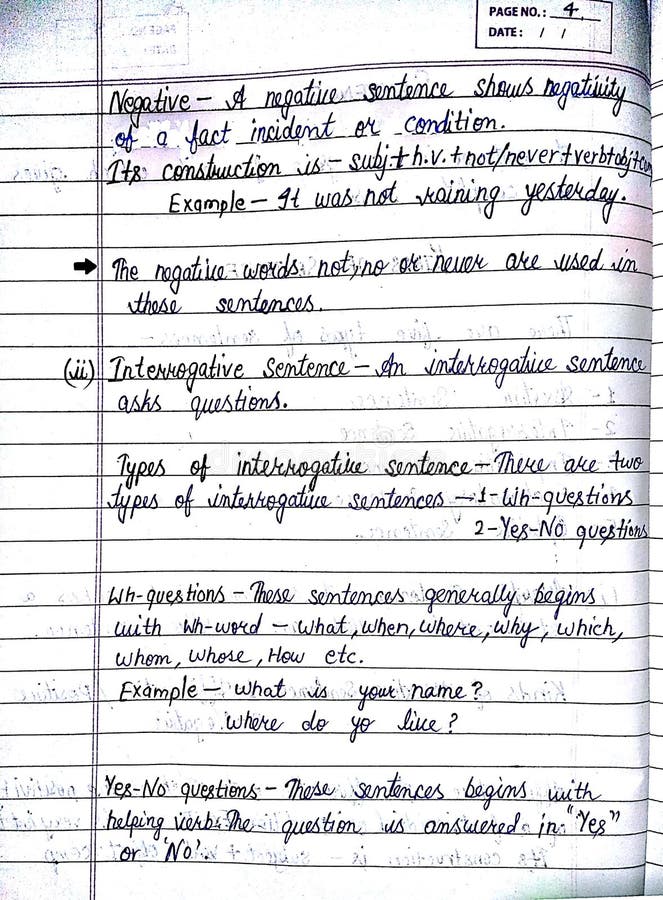 PAGE NO.: 4
DATE: / /
Negative - A negative sentence shows negativity
of a fact incident or condition.
Its construction is - subj.+h.v.+not/never+verb+obj+com
Example - It was not raining yesterday.
➡ The negative words not, no or never are used in
these sentences.
(ii) Interrogative Sentence - An interrogative sentence
asks questions.
Types of interrogative sentence - There are two
types of interrogative sentences - 1-Wh-questions
2-Yes-No questions
Wh-questions - These sentences generally begins
with wh-word - what, when, where, why, which,
whom, whose, How etc.
Example - What is your name?
Where do yo live?
Yes-No questions - These sentences begins with
helping verb. The question is answered in "Yes"
or 'No'.